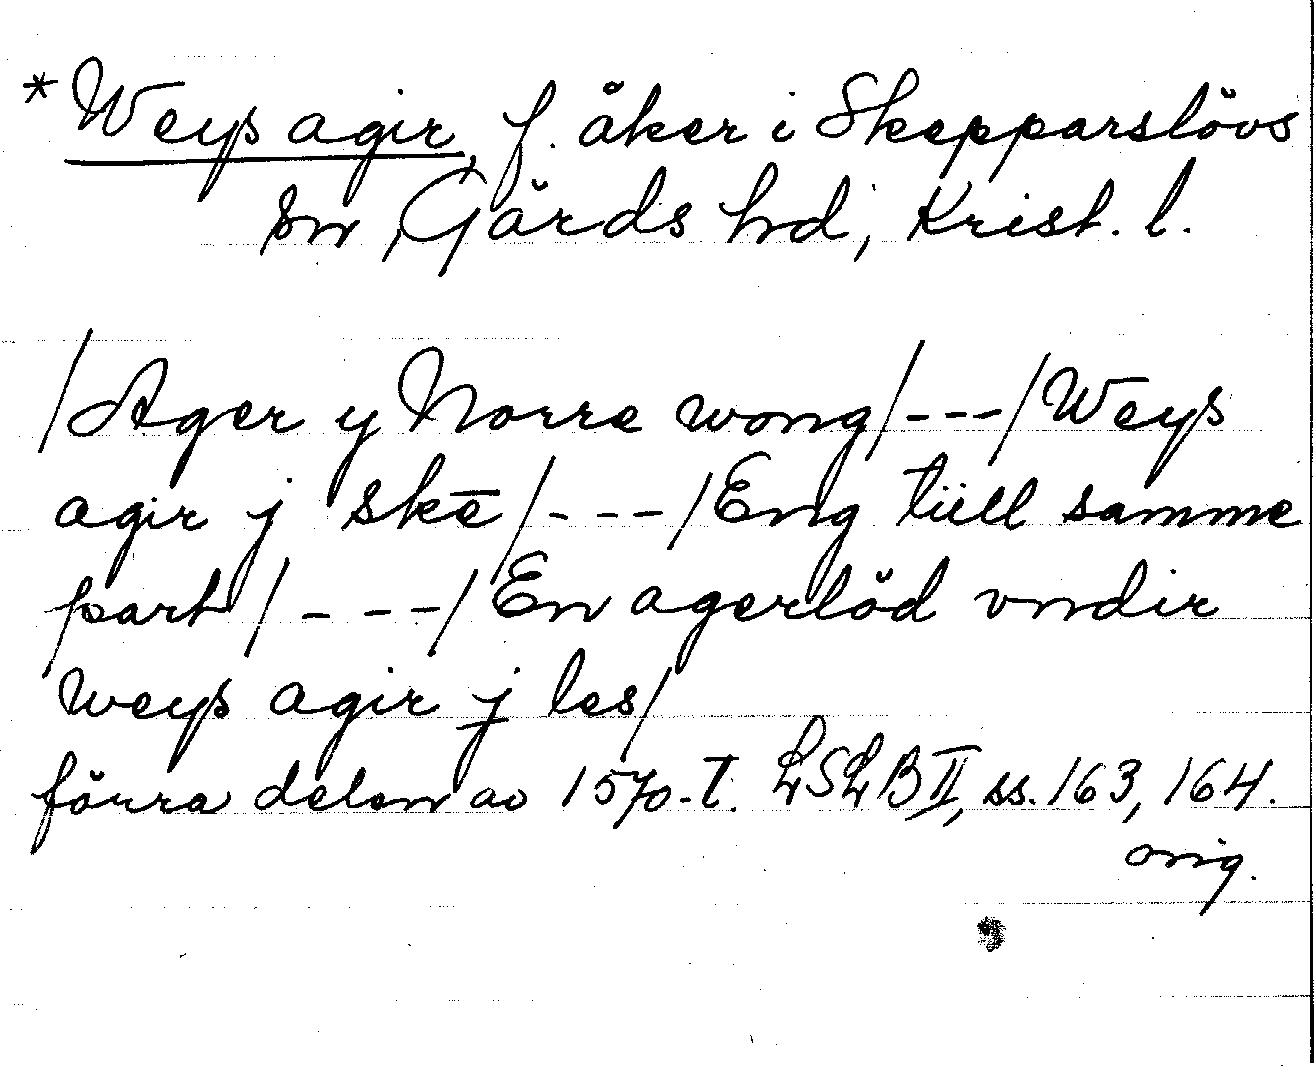 * Weys agir, f. åker i Skepparslövs
sn, Gärds hd, Krist. l.
/Ager y Norre wong/---/Weys
agir j skē/---/Eng tiill samme
part/---/En agerlöd vndir
weys agir j les/
förra delen av 1570-t. LSLB II, ss. 163, 164.
orig.